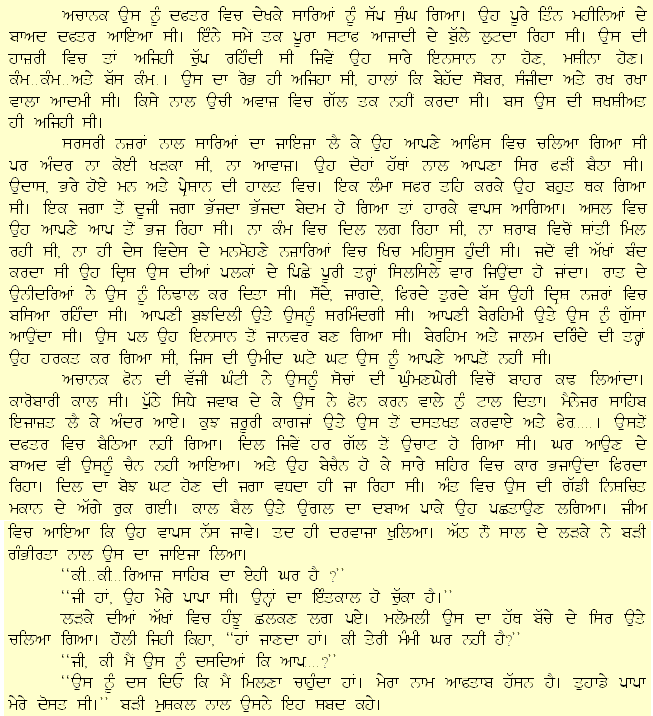 ਅਚਾਨਕ ਉਸ ਨੂੰ ਦਫਤਰ ਵਿਚ ਦੇਖਕੇ ਸਾਰਿਆਂ ਨੂੰ ਸੱਪ ਸੁੰਘ ਗਿਆ। ਉਹ ਪੂਰੇ ਤਿੰਨ ਮਹੀਨਿਆਂ ਦੇ
ਬਾਅਦ ਦਫਤਰ ਆਇਆ ਸੀ। ਇੰਨੇ ਸਮੇ ਤਕ ਪੂਰਾ ਸਟਾਫ ਆਜ਼ਾਦੀ ਦੇ ਬੁੱਲੇ ਲੁਟਦਾ ਰਿਹਾ ਸੀ। ਉਸ ਦੀ
ਹਾਜ਼ਰੀ ਵਿਚ ਤਾਂ ਅਜਿਹੀ ਚੁੱਪ ਰਹਿੰਦੀ ਸੀ ਜਿਵੇ ਉਹ ਸਾਰੇ ਇਨਸਾਨ ਨਾ ਹੋਣ, ਮਸ਼ੀਨਾ ਹੋਣ।
ਕੰਮ..ਕੰਮ..ਅਤੇ ਬੱਸ ਕੰਮ.। ਉਸ ਦਾ ਰੋਭ ਹੀ ਅਜਿਹਾ ਸੀ, ਹਾਲਾਂ ਕਿ ਬੇਹੱਦ ਸੋਬਰ, ਸੰਜੀਦਾ ਅਤੇ ਰਖ ਰਖਾ
ਵਾਲਾ ਆਦਮੀ ਸੀ। ਕਿਸੇ ਨਾਲ ਉਚੀ ਅਵਾਜ਼ ਵਿਚ ਗੱਲ ਤਕ ਨਹੀ ਕਰਦਾ ਸੀ। ਬਸ ਉਸ ਦੀ ਸਖਸ਼ੀਅਤ
ਹੀ ਅਜਿਹੀ ਸੀ।
ਸਰਸਰੀ ਨਜ਼ਰਾਂ ਨਾਲ ਸਾਰਿਆਂ ਦਾ ਜਾਇਜਾ ਲੈ ਕੇ ਉਹ ਆਪਣੇ ਆਫਿਸ ਵਿਚ ਚਲਿਆ ਗਿਆ ਸੀ
ਪਰ ਅੰਦਰ ਨਾ ਕੋਈ ਖੜਕਾ ਸੀ, ਨਾ ਆਵਾਜ਼। ਉਹ ਦੋਹਾਂ ਹੱਥਾਂ ਨਾਲ ਆਪਣਾ ਸਿਰ ਫੜੀ ਬੈਠਾ ਸੀ।
ਉਦਾਸ, ਭਰੇ ਹੋਏ ਮਨ ਅਤੇ ਪ੍ਰੇਸ਼ਾਨ ਦੀ ਹਾਲਤ ਵਿਚ। ਇਕ ਲੰਮਾ ਸਫਰ ਤਹਿ ਕਰਕੇ ਉਹ ਬਹੁਤ ਥਕ ਗਿਆ
ਸੀ। ਇਕ ਜਗਾ ਤੋ ਦੂਜੀ ਜਗਾ ਭੱਜਦਾ ਭੱਜਦਾ ਬੇਦਮ ਹੋ ਗਿਆ ਤਾਂ ਹਾਰਕੇ ਵਾਪਸ ਆਗਿਆ। ਅਸਲ ਵਿਚ
ਉਹ ਆਪਣੇ ਆਪ ਤੋ ਭਜ ਰਿਹਾ ਸੀ। ਨਾ ਕੰਮ ਵਿਚ ਦਿਲ ਲਗ ਰਿਹਾ ਸੀ, ਨਾ ਸ਼ਰਾਬ ਵਿਚੋ ਸ਼ਾਂਤੀ ਮਿਲ
ਰਹੀ ਸੀ, ਨਾ ਹੀ ਦੇਸ ਵਿਦੇਸ ਦੇ ਮਨਮੋਹਣੇ ਨਜ਼ਾਰਿਆਂ ਵਿਚ ਖਿਚ ਮਹਿਸੂਸ ਹੁੰਦੀ ਸੀ। ਜਦੋ ਵੀ ਅੱਖਾਂ ਬੰਦ
ਕਰਦਾ ਸੀ ਉਹ ਦ੍ਰਿਸ਼ ਉਸ ਦੀਆਂ ਪਲਕਾਂ ਦੇ ਪਿਛੇ ਪੂਰੀ ਤਰ੍ਹਾਂ ਸਿਲਸਿਲੇ ਵਾਰ ਜਿਉਂਦਾ ਹੋ ਜਾਂਦਾ। ਰਾਤ ਦੇ
ਉਨੀਦਰਿਆਂ ਨੇ ਉਸ ਨੂੰ ਨਿਢਾਲ ਕਰ ਦਿਤਾ ਸੀ। ਸੌਂਦੇ, ਜਾਗਦੇ, ਫਿਰਦੇ ਤੁਰਦੇ ਬੱਸ ਉਹੀ ਦ੍ਰਿਸ਼ ਨਜਰਾਂ ਵਿਚ
ਬਸਿਆ ਰਹਿੰਦਾ ਸੀ। ਆਪਣੀ ਬੁਝਦਿਲੀ ਉਤੇ ਉਸਨੂੰ ਸ਼ਰਮਿੰਦਗੀ ਸੀ। ਆਪਣੀ ਬੇਰਹਿਮੀ ਉਤੇ ਉਸ ਨੂੰ ਗੁੱਸਾ
ਆਉਂਦਾ ਸੀ। ਉਸ ਪਲ ਉਹ ਇਨਸਾਨ ਤੋ ਜਾਨਵਰ ਬਣ ਗਿਆ ਸੀ। ਬੇਰਹਿਮ ਅਤੇ ਜਾਲਮ ਦਰਿੰਦੇ ਦੀ ਤਰ੍ਹਾਂ
ਉਹ ਹਰਕਤ ਕਰ ਗਿਆ ਸੀ, ਜਿਸ ਦੀ ਉਮੀਦ ਘਟੋ ਘਟ ਉਸ ਨੂੰ ਆਪਣੇ ਆਪਤੋ ਨਹੀ ਸੀ।
ਅਚਾਨਕ ਫੋਨ ਦੀ ਵੱਜੀ ਘੰਟੀ ਨੇ ਉਸਨੂੰ ਸੋਚਾਂ ਦੀ ਘੁੰਮਣਘੇਰੀ ਵਿਚੋ ਬਾਹਰ ਕਢ ਲਿਆਂਦਾ।
ਕਾਰੋਬਾਰੀ ਕਾਲ ਸੀ। ਪੁੱਠੇ ਸਿਧੇ ਜਵਾਬ ਦੇ ਕੇ ਉਸ ਨੇ ਫੋਨ ਕਰਨ ਵਾਲੇ ਨੂੰ ਟਾਲ ਦਿਤਾ। ਮੈਨੇਜਰ ਸਾਹਿਬ
ਇਜਾਜਤ ਲੈ ਕੇ ਅੰਦਰ ਆਏ। ਕੁਝ ਜ਼ਰੂਰੀ ਕਾਗਜਾਂ ਉਤੇ ਉਸ ਤੋਂ ਦਸਤਖਤ ਕਰਵਾਏ ਅਤੇ ਫੇਰ....। ਉਸਤੋਂ
ਦਫਤਰ ਵਿਚ ਬੈਠਿਆ ਨਹੀ ਗਿਆ। ਦਿਲ ਜਿਵੇਂ ਹਰ ਗੱਲ ਤੋਂ ਉਚਾਟ ਹੋ ਗਿਆ ਸੀ। ਘਰ ਆਉਣ ਦੇ
ਬਾਅਦ ਵੀ ਉਸਨੂੰ ਚੈਨ ਨਹੀ ਆਇਆ। ਅਤੇ ਉਹ ਬੇਚੈਨ ਹੋ ਕੇ ਸਾਰੇ ਸ਼ਹਿਰ ਵਿਚ ਕਾਰ ਭਜਾਉਂਦਾ ਫਿਰਦਾ
ਰਿਹਾ। ਦਿਲ ਦਾ ਬੋਝ ਘਟ ਹੋਣ ਦੀ ਜਗਾ ਵਧਦਾ ਹੀ ਜਾ ਰਿਹਾ ਸੀ। ਅੰਤ ਵਿਚ ਉਸ ਦੀ ਗੱਡੀ ਨਿਸ਼ਚਿਤ
ਮਕਾਨ ਦੇ ਅੱਗੇ ਰੁਕ ਗਈ। ਕਾਲ ਬੈਲ ਉਤੇ ਉਂਗਲ ਦਾ ਦਬਾਅ ਪਾਕੇ ਉਹ ਪਛਤਾਉਣ ਲਗਿਆ। ਜੀਅ
ਵਿਚ ਆਇਆ ਕਿ ਉਹ ਵਾਪਸ ਨੱਸ ਜਾਵੇ। ਤਦ ਹੀ ਦਰਵਾਜਾ ਖੁਲਿਆ। ਅੱਠ ਨੌ ਸਾਲ ਦੇ ਲੜਕੇ ਨੇ ਬੜੀ
ਗੰਭੀਰਤਾ ਨਾਲ ਉਸ ਦਾ ਜਾਇਜਾ ਲਿਆ।
‘‘ਕੀ..ਕੀ..ਰਿਆਜ਼ ਸਾਹਿਬ ਦਾ ਏਹੀ ਘਰ ਹੈ ?’’
‘‘ਜੀ ਹਾਂ, ਉਹ ਮੇਰੇ ਪਾਪਾ ਸੀ। ਉਨ੍ਹਾਂ ਦਾ ਇੰਤਕਾਲ ਹੋ ਚੁੱਕਾ ਹੈ।’’
ਲੜਕੇ ਦੀਆਂ ਅੱਖਾਂ ਵਿਚ ਹੰਝੂ ਛਲਕਣ ਲਗ ਪਏ। ਮਲੋਮਲੀ ਉਸ ਦਾ ਹੱਥ ਬੱਚੇ ਦੇ ਸਿਰ ਉਤੇ
ਚਲਿਆ ਗਿਆ। ਹੌਲੀ ਜਿਹੀ ਕਿਹਾ, ‘‘ਹਾਂ ਜਾਣਦਾ ਹਾਂ। ਕੀ ਤੇਰੀ ਮੰਮੀ ਘਰ ਨਹੀ ਹੈ?’’
‘‘ਜੀ, ਕੀ ਮੈਂ ਉਸ ਨੂੰ ਦਸਦਿਆਂ ਕਿ ਆਪ...?’’
‘‘ਉਸ ਨੂੰ ਦਸ ਦਿਓ ਕਿ ਮੈਂ ਮਿਲਣਾ ਚਾਹੁੰਦਾ ਹਾਂ। ਮੇਰਾ ਨਾਮ ਆਫਤਾਬ ਹੱਸਨ ਹੈ। ਤੁਹਾਡੇ ਪਾਪਾ
ਮੇਰੇ ਦੋਸਤ ਸੀ।’’ ਬੜੀ ਮੁਸ਼ਕਲ ਨਾਲ ਉਸਨੇ ਇਹ ਸ਼ਬਦ ਕਹੇ।